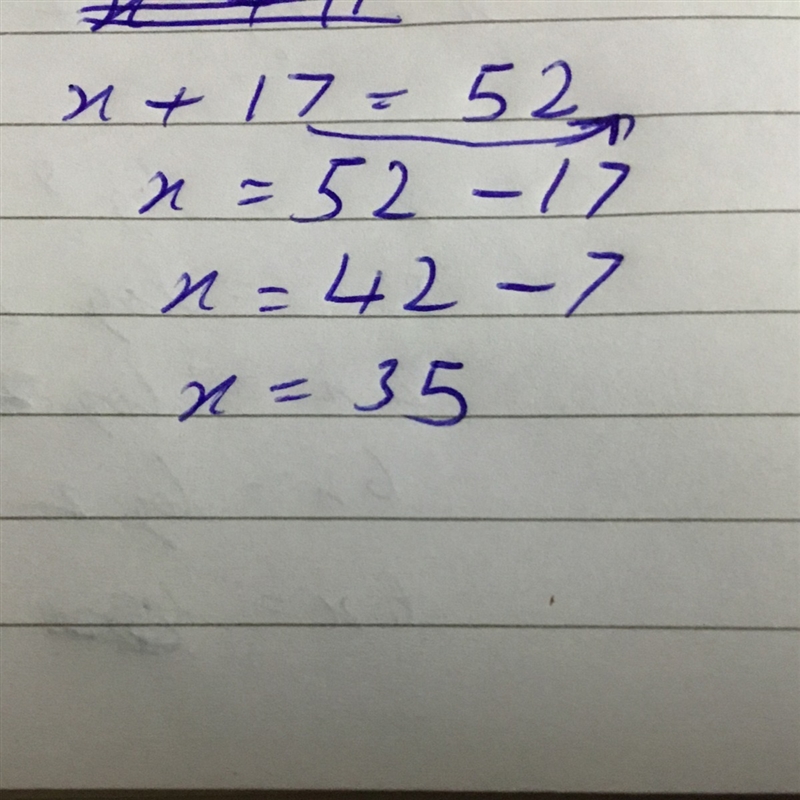 x + 17 = 52
x = 52 - 17
x = 42 - 7
x = 35